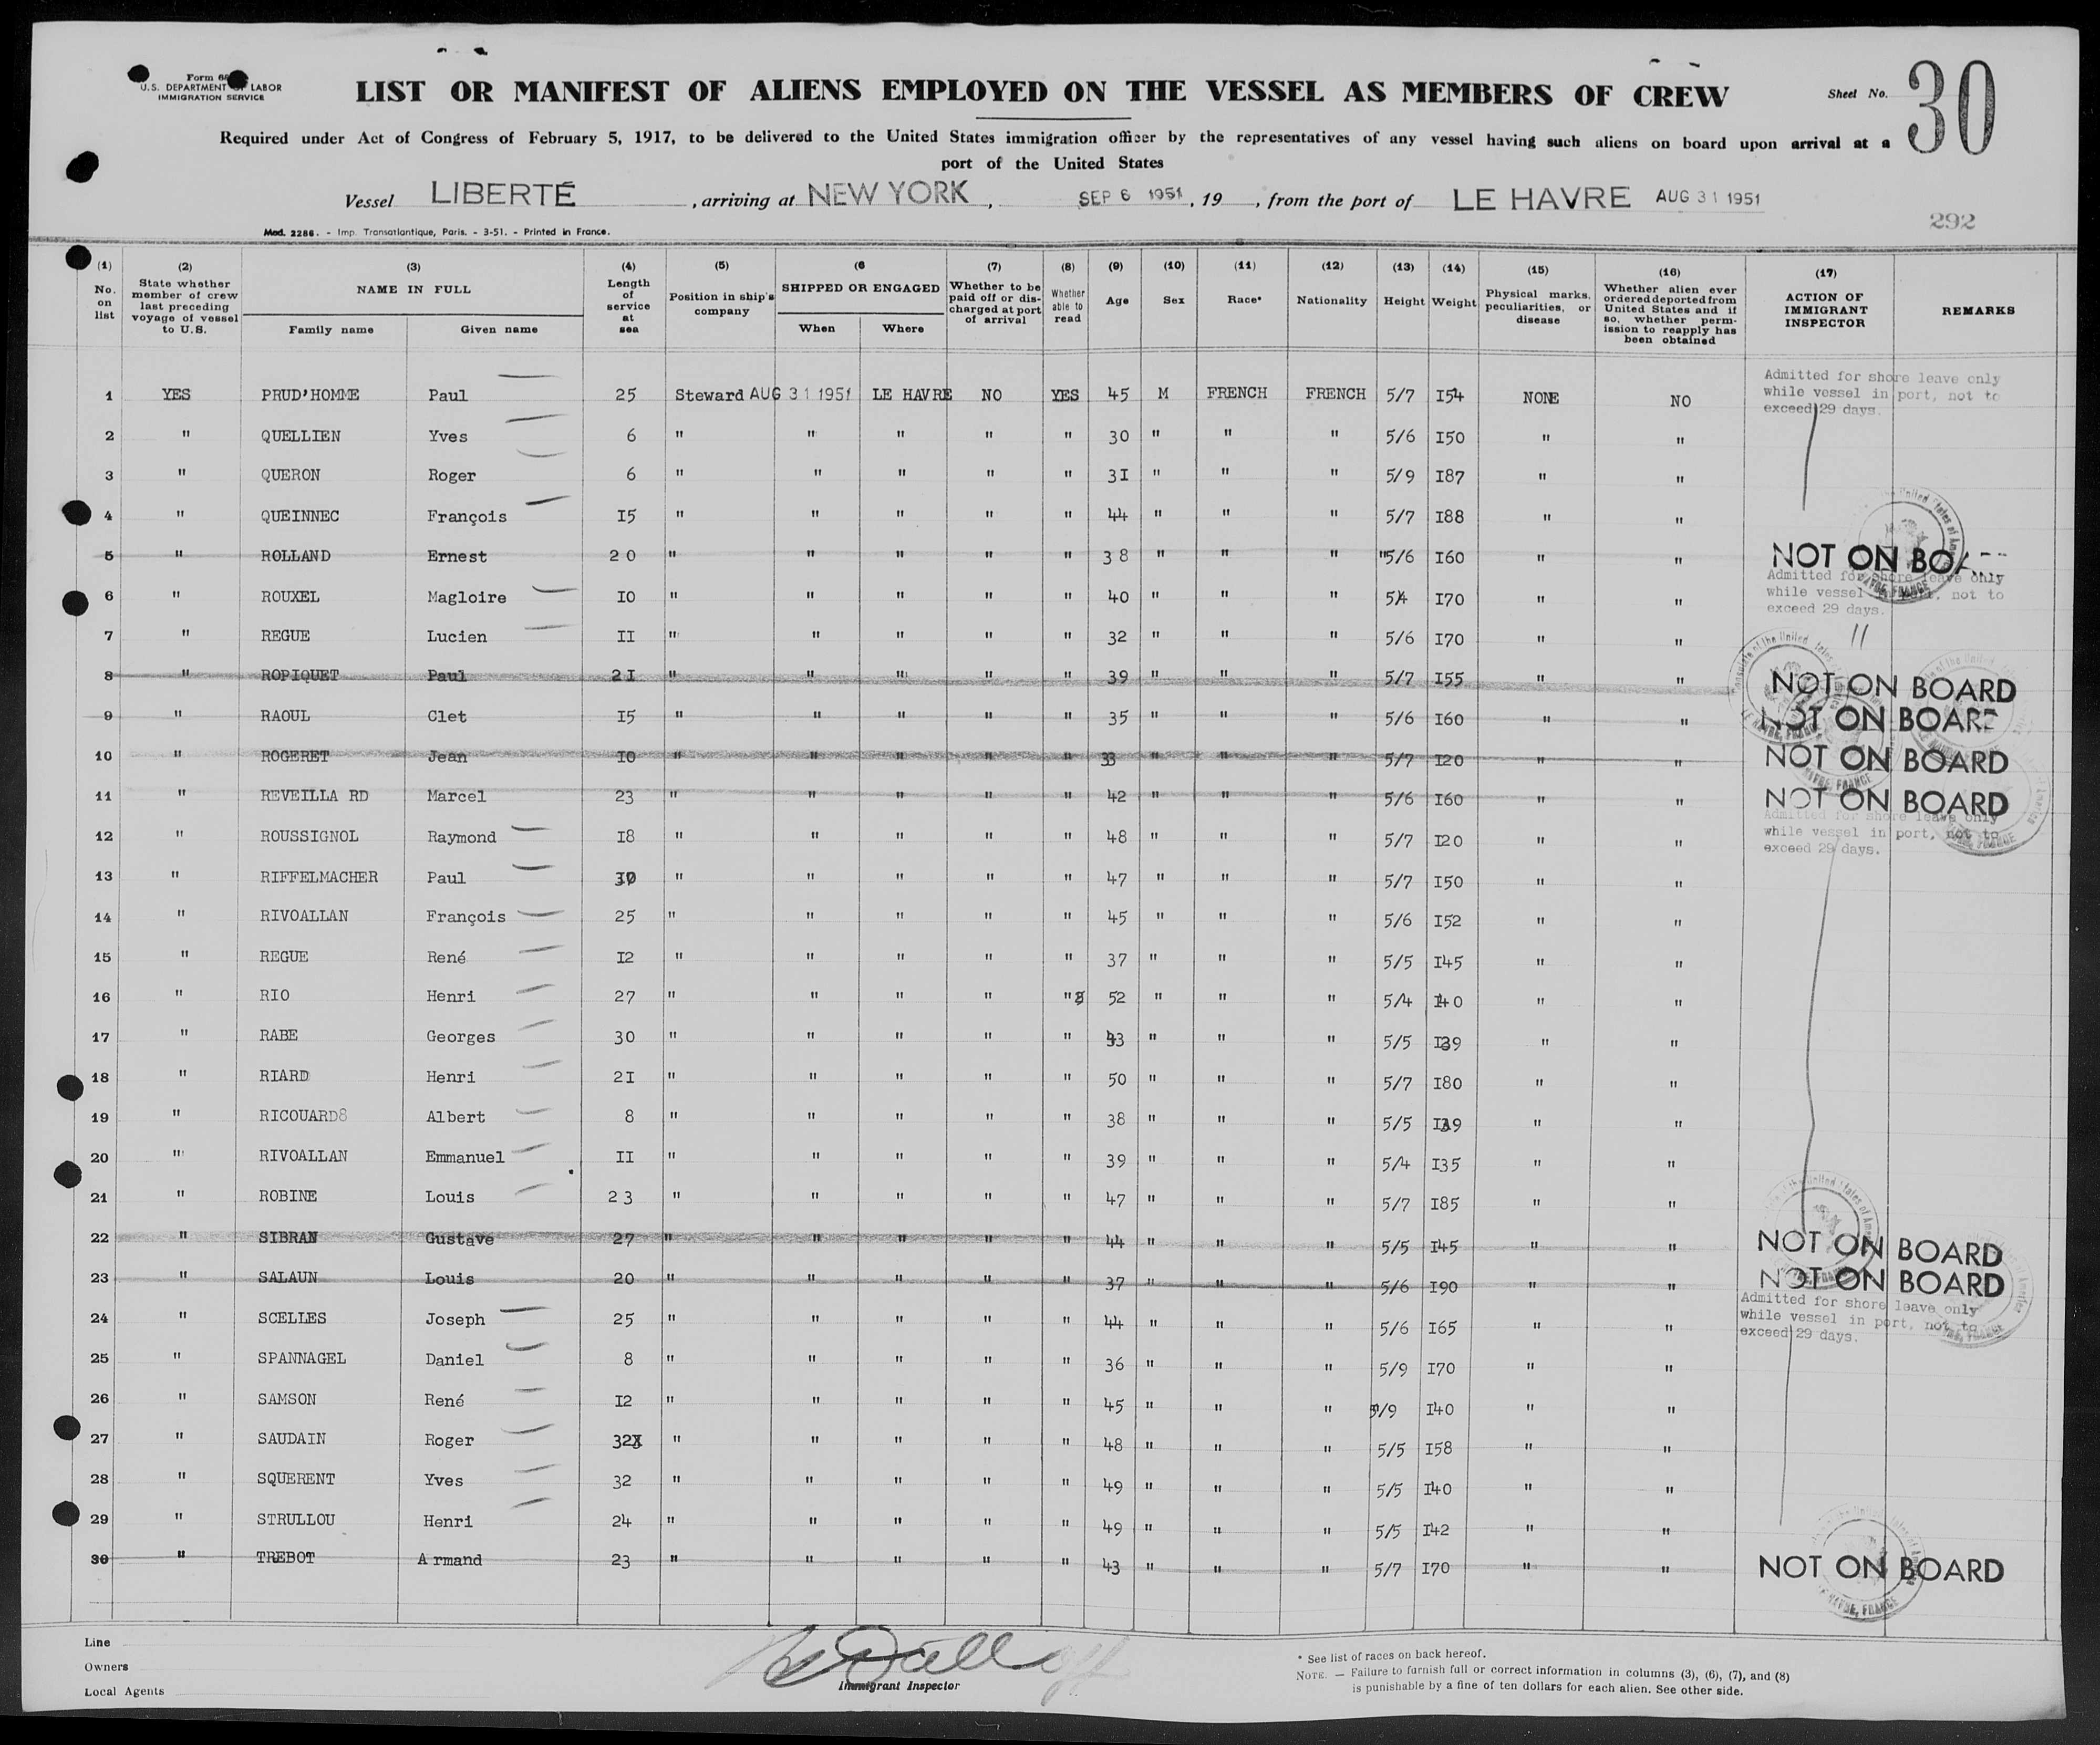 Form 68
U.S. DEPARTMENT OF LABOR
IMMIGRATION SERVICE
LIST OR MANIFEST OF ALIENS EMPLOYED ON THE VESSEL AS MEMBERS OF CREW
Sheet No. 30
Required under Act of Congress of February 5, 1917, to be delivered to the United States immigration officer by the representatives of any vessel having such aliens on board upon arrival at a
port of the United States
Vessel LIBERTÉ, arriving at NEW YORK, SEP 6 1951, 19 , from the port of LE HAVRE AUG 31 1951
292
Mod. 2286. - Imp. Transatlantique, Paris. - 3-51. - Printed in France.
(1) No. on list
(2) State whether member of crew last preceding voyage of vessel to U.S.
(3) NAME IN FULL Family name Given name
(4) Length of service at sea
(5) Position in ship's company
(6 SHIPPED OR ENGAGED When Where
(7) Whether to be paid off or discharged at port of arrival
(8) Whether able to read
(9) Age
(10) Sex
(11) Race*
(12) Nationality
(13) Height
(14) Weight
(15) Physical marks, peculiarities, or disease
(16) Whether alien ever ordered deported from United States and if so, whether permission to reapply has been obtained
(17) ACTION OF IMMIGRANT INSPECTOR
REMARKS
1 YES PRUD'HOMME Paul 25 Steward AUG 31 1951 LE HAVRE NO YES 45 M FRENCH FRENCH 5/7 I54 NONE NO Admitted for shore leave only while vessel in port, not to exceed 29 days.
2 " QUELLIEN Yves 6 " " " " " 30 " " " 5/6 I50 " "
3 " QUERON Roger 6 " " " " " 3I " " " 5/9 I87 " "
4 " QUEINNEC François I5 " " " " " 44 " " " 5/7 I88 " "
5 " ROLLAND Ernest 20 " " " " " 38 " " " "5/6 I60 " " NOT ON BOA
6 " ROUXEL Magloire IO " " " " " 40 " " " 5/4 I70 " " Admitted for shore leave only while vessel in port, not to exceed 29 days.
7 " REGUE Lucien II " " " " " 32 " " " 5/6 I70 " "
8 " ROPIQUET Paul 2I " " " " " 39 " " " 5/7 I55 " " NOT ON BOARD
9 " RAOUL Clet I5 " " " " " 35 " " " 5/6 I60 " " NOT ON BOARD
10 " ROGERET Jean IO " " " " " 33 " " " 5/7 I20 " " NOT ON BOARD
11 " REVEILLA RD Marcel 23 " " " " " 42 " " " 5/6 I60 " " NOT ON BOARD
12 " ROUSSIGNOL Raymond I8 " " " " " 48 " " " 5/7 I20 " " Admitted for shore leave only while vessel in port, not to exceed 29 days.
13 " RIFFELMACHER Paul " " " " " 47 " " " 5/7 I50 " "
14 " RIVOALLAN François 25 " " " " " 45 " " " 5/6 I52 " "
15 " REGUE René I2 " " " " " 37 " " " 5/5 I45 " "
16 " RIO Henri 27 " " " " " 52 " " " 5/4 I40 " "
17 " RABE Georges 30 " " " " " " " " 5/5 I39 " "
18 " RIARD Henri 2I " " " " " 50 " " " 5/7 I80 " "
19 " RICOUARD8 Albert 8 " " " " " 38 " " " 5/5 I39 " "
20 " RIVOALLAN Emmanuel II " " " " " 39 " " " 5/4 I35 " "
21 " ROBINE Louis 23 " " " " " 47 " " " 5/7 I85 " "
22 " SIBRAN Gustave 27 " " " " " 44 " " " 5/5 I45 " " NOT ON BOARD
23 " SALAUN Louis 20 " " " " " 37 " " " 5/6 I90 " " NOT ON BOARD
24 " SCELLES Joseph 25 " " " " " 44 " " " 5/6 I65 " " Admitted for shore leave only while vessel in port, not to exceed 29 days.
25 " SPANNAGEL Daniel 8 " " " " " 36 " " " 5/9 I70 " "
26 " SAMSON René I2 " " " " " 45 " " " 5/9 I40 " "
27 " SAUDAIN Roger 32 " " " " " 48 " " " 5/5 I58 " "
28 " SQUERENT Yves 32 " " " " " 49 " " " 5/5 I40 " "
29 " STRULLOU Henri 24 " " " " " 49 " " " 5/5 I42 " "
30 " TREBOT Armand 23 " " " " " 43 " " " 5/7 I70 " " NOT ON BOARD
Line
Owners
Local Agents
Immigrant Inspector
* See list of races on back hereof.
NOTE. — Failure to furnish full or correct information in columns (3), (6), (7), and (8)
is punishable by a fine of ten dollars for each alien. See other side.